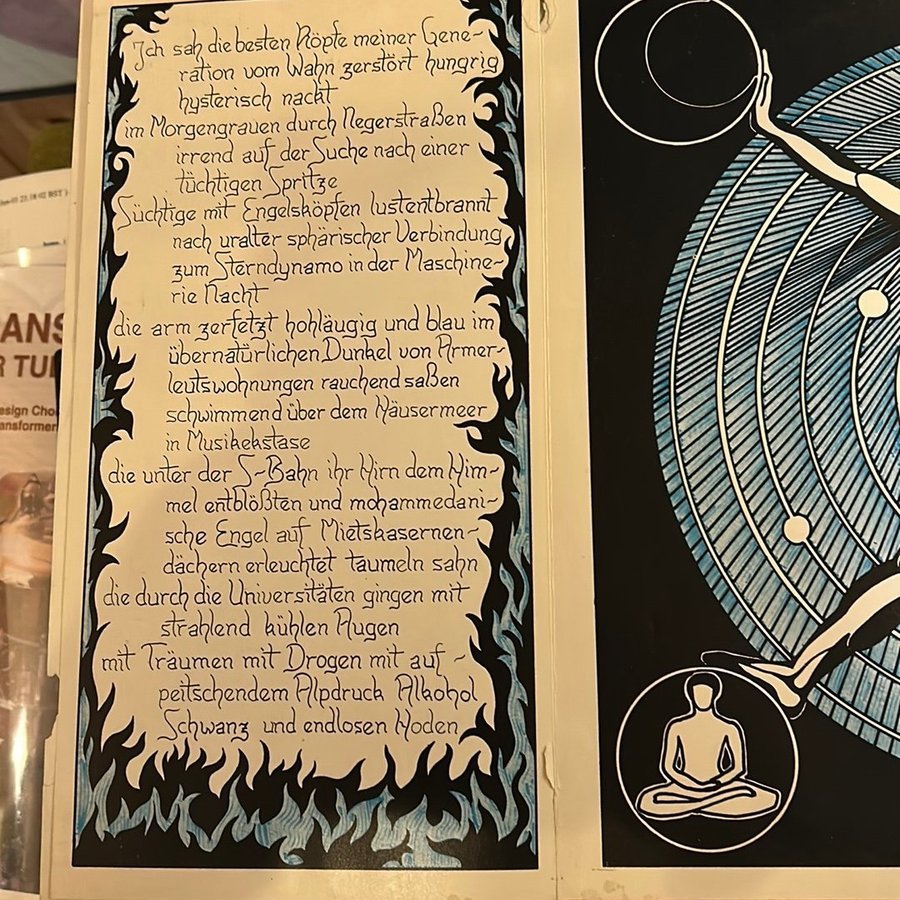 Ich sah die besten Köpfe meiner Gene-
ration vom Wahn zerstört hungrig
hysterisch nackt
im Morgengrauen durch Negerstraßen
irrend auf der Suche nach einer
tüchtigen Spritze
Süchtige mit Engelsköpfen lustentbrannt
nach uralter sphärischer Verbindung
zum Sterndynamo in der Maschine-
rie Nacht
die arm zerfetzt hohläugig und blau im
übernatürlichen Dunkel von Armer-
leutswohnungen rauchend saßen
schwimmend über dem Häusermeer
in Musikekstase
die unter der S-Bahn ihr Hirn dem Him-
mel entblößten und mohammedani-
sche Engel auf Mietskasernen-
dächern erleuchtet taumeln sahn
die durch die Universitäten gingen mit
strahlend kühlen Augen
mit Träumen mit Drogen mit auf-
peitschendem Alpdruck Alkohol
Schwanz und endlosen Hoden